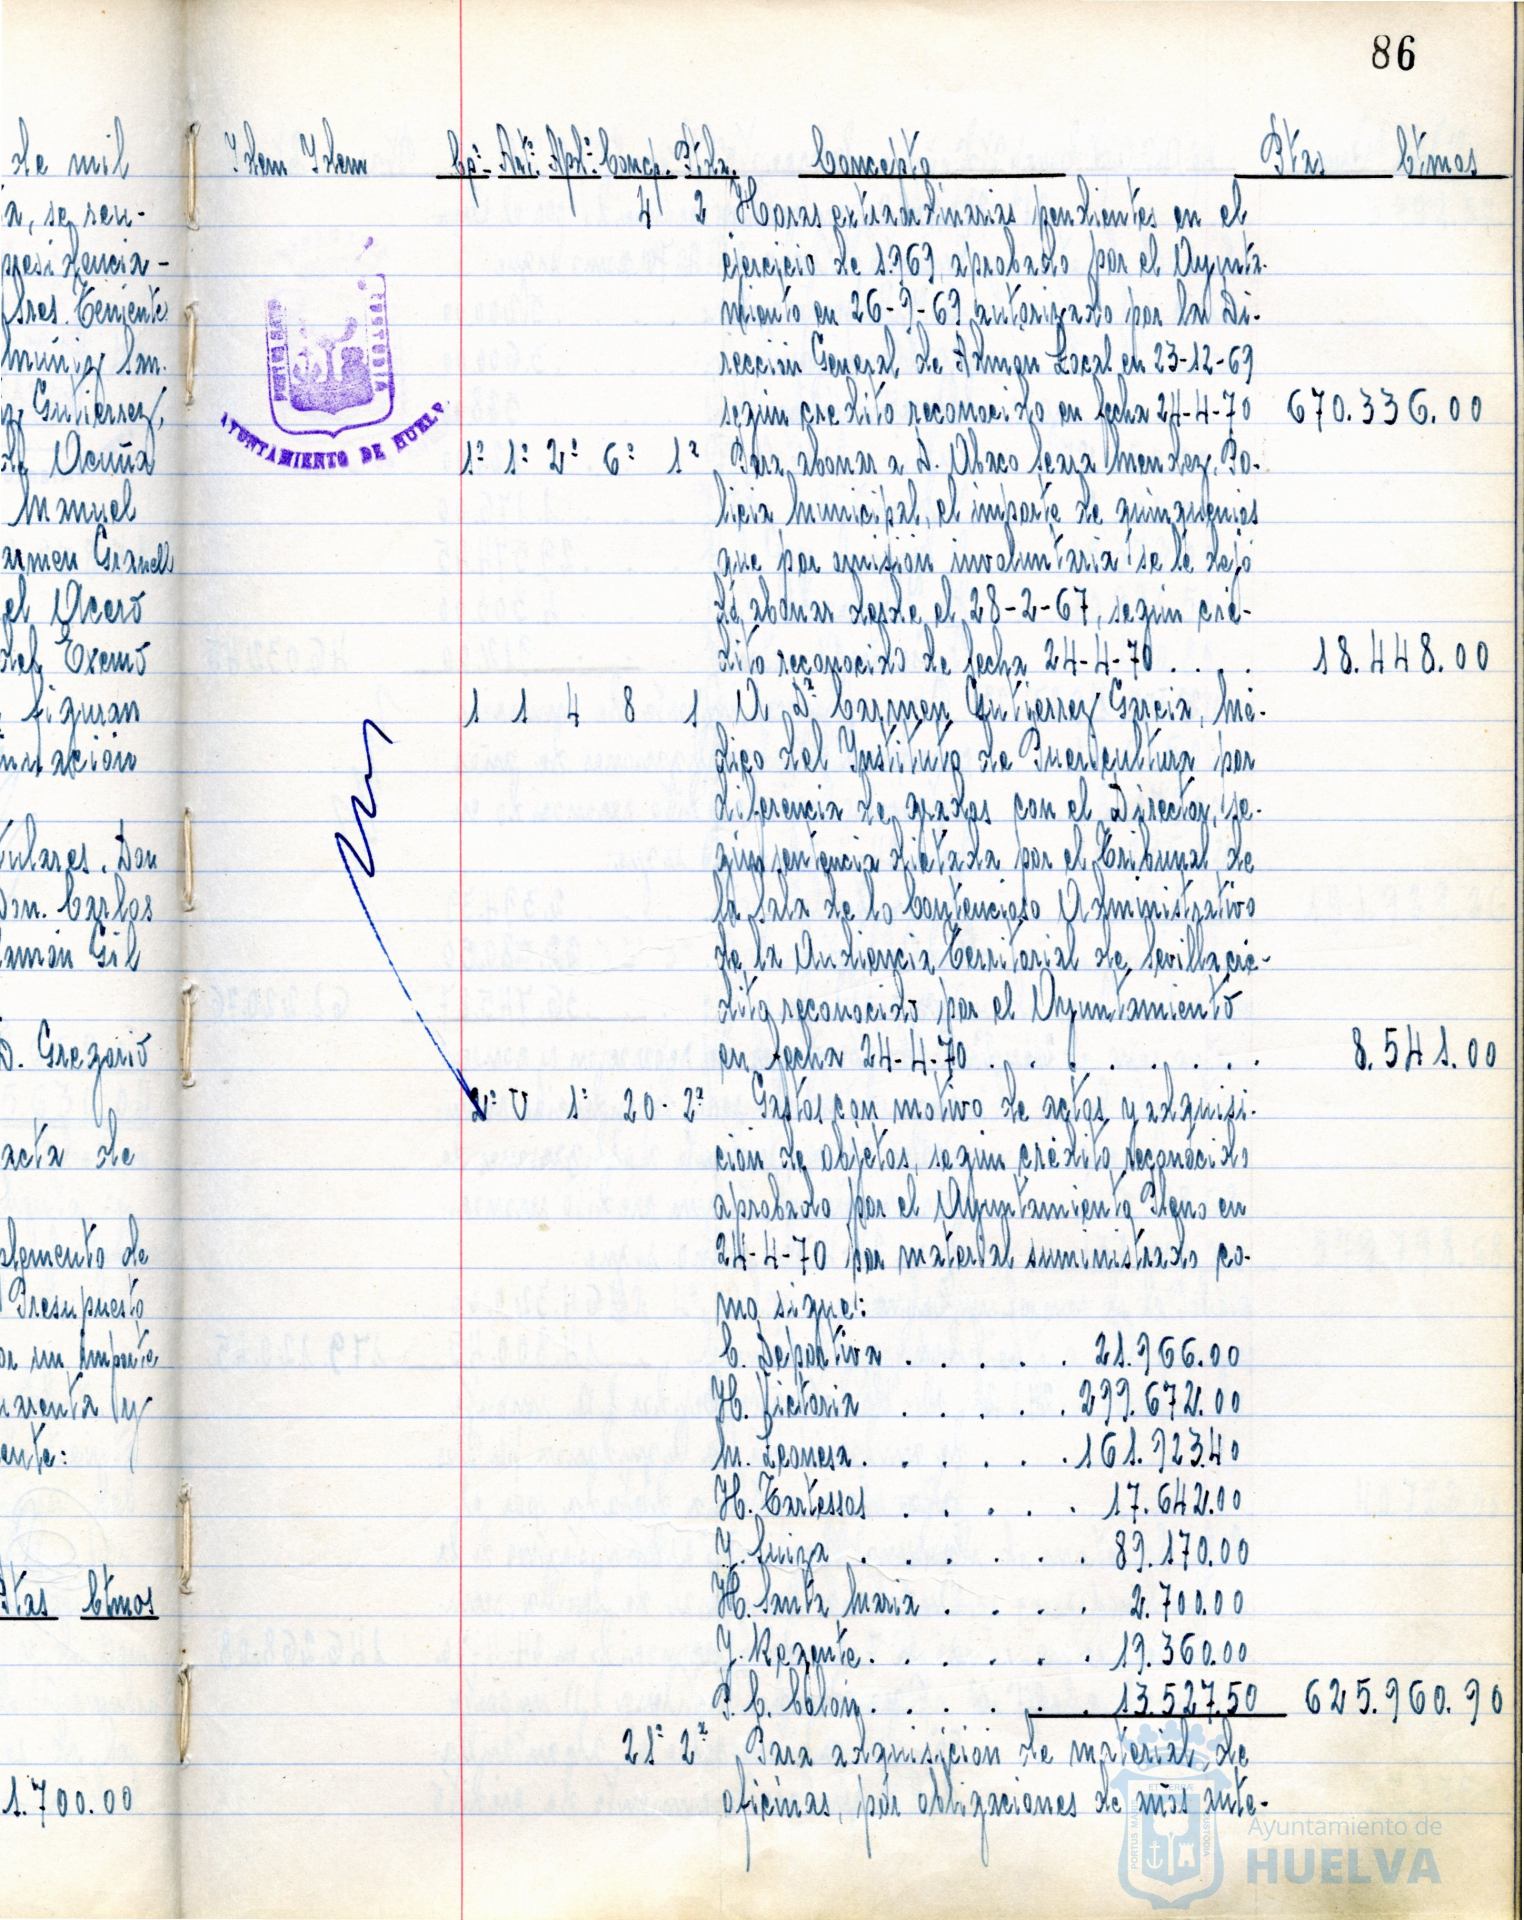 86
de mil
a, se reu-
presidencia-
Sres. Teniente
Muñiz San.
z Gutierrez,
de Acuña
Manuel
armen Granell
el Acero
del Excmo
figuran
Don
Don. Carlos
amón Gil
D. Gregorio
acta de
plemento de
Presupuesto
or un importe
uarenta y
ente:
Ptas Ctmos
1.700.00
Idem Idem Cpº Artº Apdº Concp. Ptda. Concepto Ptas Ctmos
4 2 Horas extraordinarias pendientes en el
ejercicio de 1.969, aprobado por el Ayunta-
miento en 26-9-69 autorizado por la Di-
rección General de Admon Local en 23-12-69
según credito reconocido en fecha 24-4-70 670.336.00
1º 1º 2º 6º 1ª Para abonar a D. Seara Mendez, Po-
licia Municipal, el importe de quinquenios
que por omisión involuntaria se le dejó
de abonar desde el 28-2-67, según cré-
dito reconocido de fecha 24-4-70 . . . . 18.448.00
1 1 4 8 1 A Dª Carmen Gutierrez Garcia, Mé-
dico del Instituto de Puericultura por
diferencia de grados con el Director, se-
gún sentencia dictada por el Tribunal de
la Sala de lo Contencioso Administrativo
de la Audiencia Territorial de Sevilla cré-
dito reconocido por el Ayuntamiento
en fecha 24-4-70 . . . . . . . . 8.541.00
2º U 1º 20- 2ª Gastos con motivo de actos y adquisi-
ción de objetos, según crédito reconocido
aprobado por el Ayuntamiento Pleno en
24-4-70 por material suministrado co-
mo sigue:
C. Deportiva . . . . . 21.966.00
H. Victoria . . . . . 299.672.00
M. Leonesa . . . . . . 161.923.40
H. Tartessos . . . . . 17.642.00
Y. Suiza . . . . . . 89.170.00
H. Santa Maria . . . . 2.700.00
Y. Regente . . . . . . 19.360.00
P. C. Colon . . . . . . 13.527.50 625.960.90
21º 2ª Para adquisición de material de
oficinas, por obligaciones de años ante-
AYUNTAMIENTO DE HUELVA
Ayuntamiento de
HUELVA